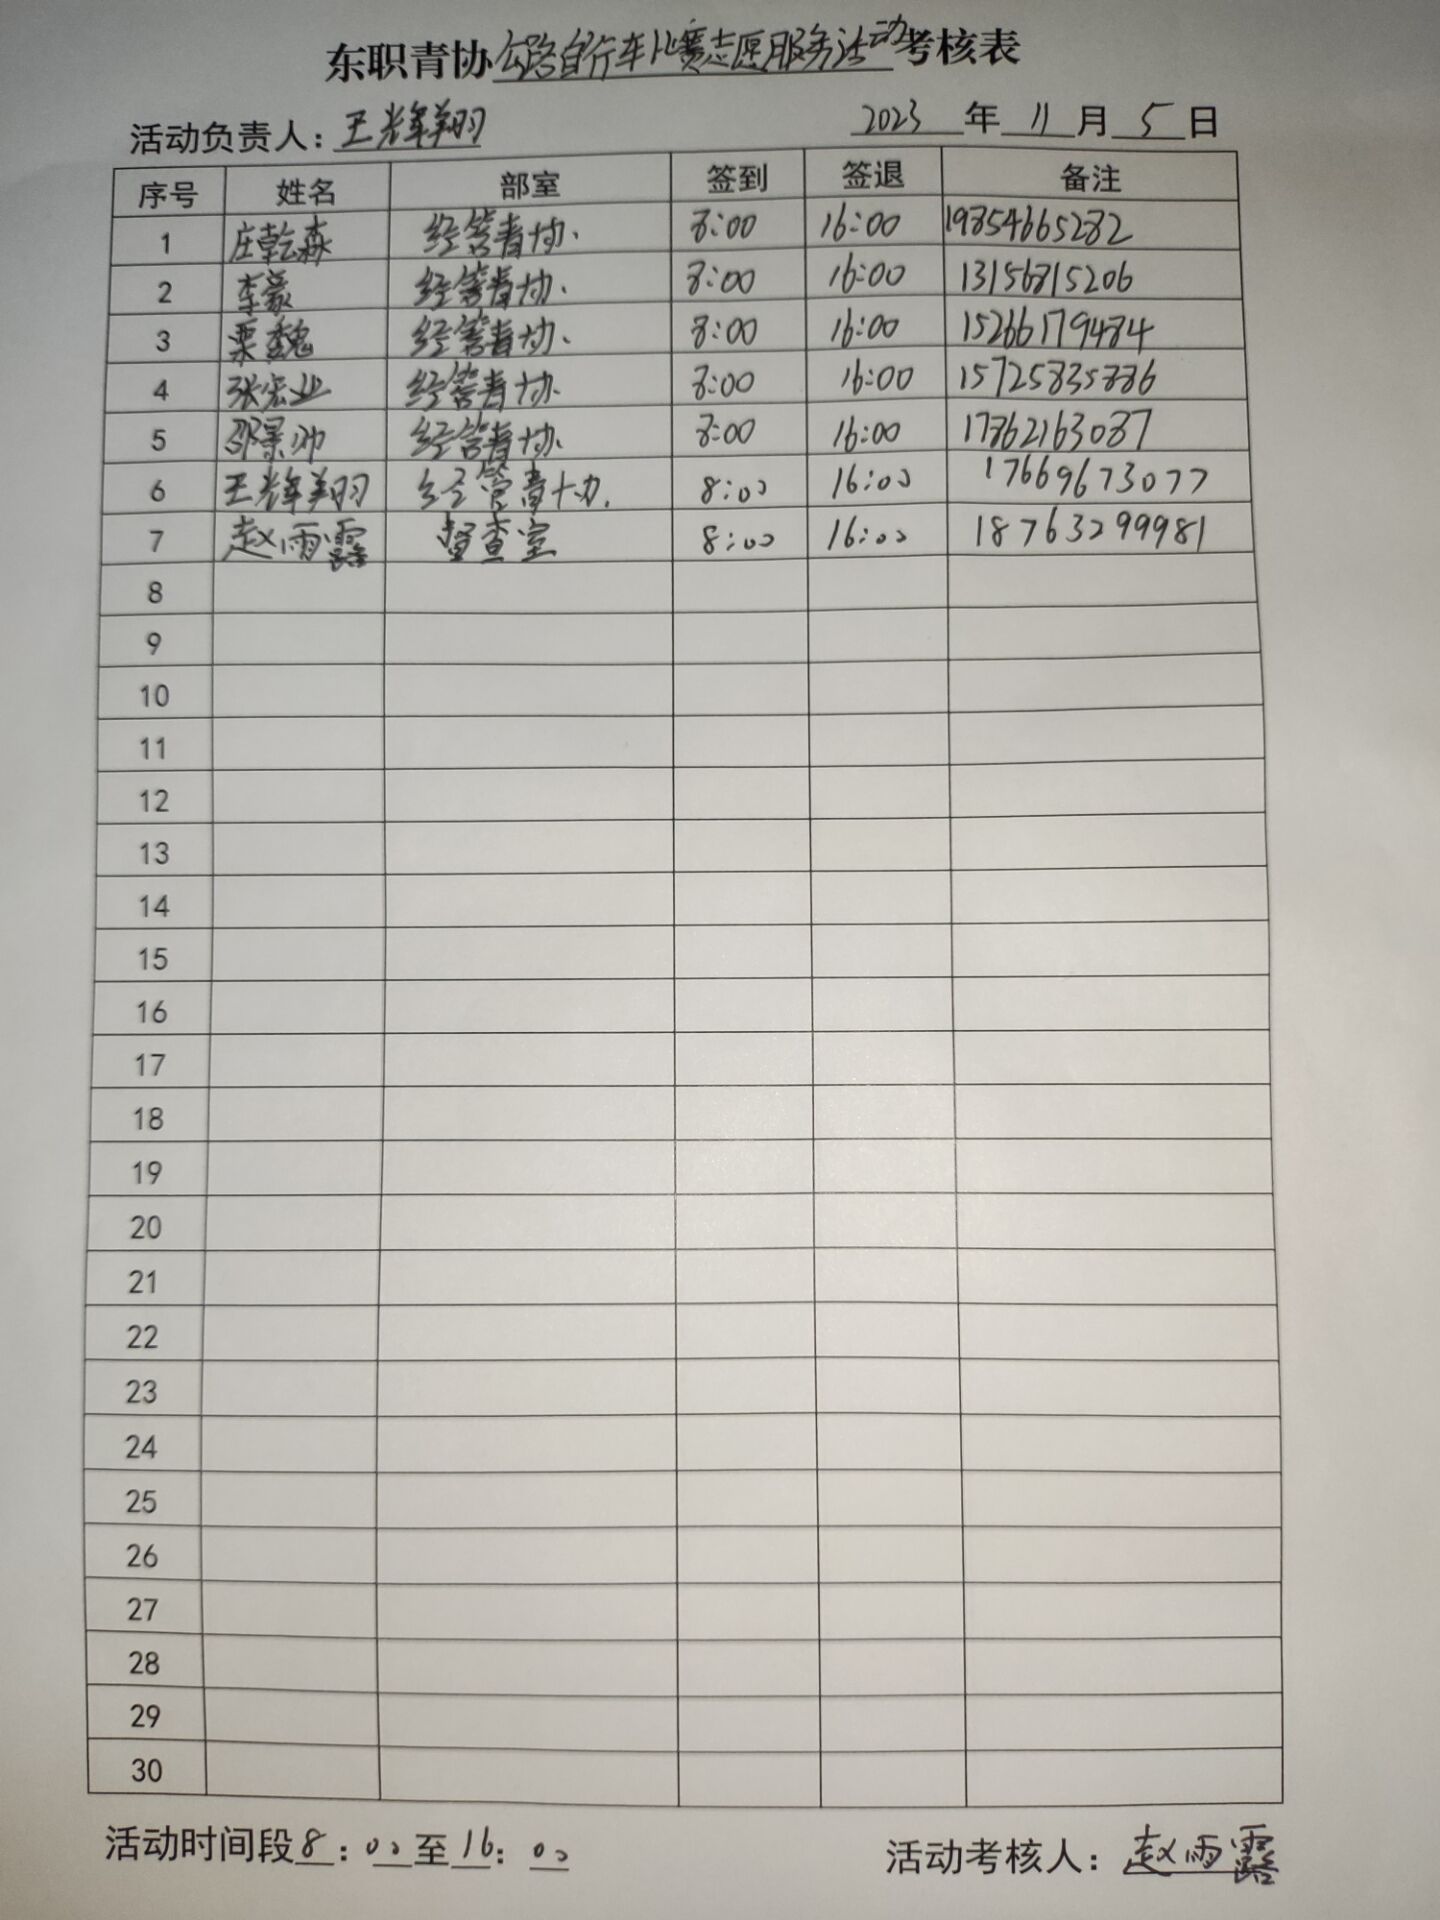 东职青协公路自行车比赛志愿服务活动考核表
活动负责人：王辉翔 2023年11月5日
序号 姓名 部室 签到 签退 备注
1 庄乾森 经管青协. 8:00 16:00 19854665282
2 李豪 经管青协. 8:00 16:00 13156815206
3 栗魏 经管青协. 8:00 16:00 15266179484
4 张宏业 经管青协. 8:00 16:00 15725835886
5 邵景帅 经管青协. 8:00 16:00 17862163087
6 王辉翔 经管青协. 8:00 16:00 17669673077
7 赵雨露 督查室 8:00 16:00 18763299981
8
9
10
11
12
13
14
15
16
17
18
19
20
21
22
23
24
25
26
27
28
29
30
活动时间段8：00至16：00 活动考核人：赵雨露